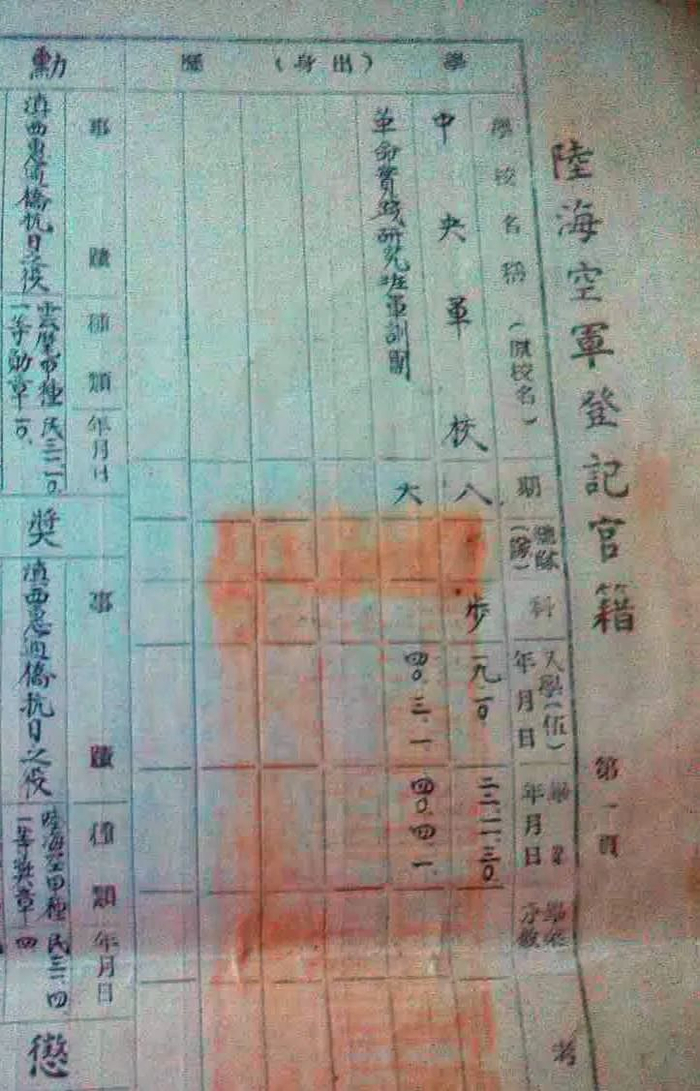 陸海空軍登記官籍
第一頁
學（出身）歷
學校名稱（原校名）
期
總隊（隊）
科
入學（伍）年月日
畢業年月日
考
中央軍校
八
步
一九.一.〇
二二.一一.三〇
革命實踐研究班軍訓團
六
四〇.三.一
四〇.四.一
勳
事蹟
種類
年月日
滇西惠通橋抗日之役
雲麾乙種
一等勛章
獎
事蹟
種類
年月日
滇西惠通橋抗日之役
陸海空甲種
一等獎章
民三一.四
懲